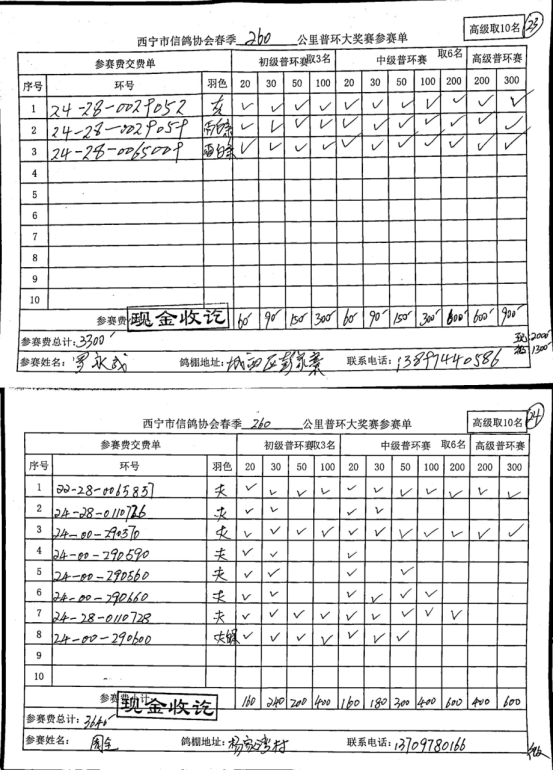 西宁市信鸽协会春季 260 公里普环大奖赛参赛单 高级取10名 23
参赛费交费单 初级普环赛取3名 中级普环赛 取6名 高级普环赛
序号 环号 羽色 20 30 50 100 20 30 50 100 200 200 300
1 24-28-0029052 灰 ✓ ✓ ✓ ✓ ✓ ✓ ✓ ✓ ✓ ✓ ✓
2 24-28-0029059 雨白条 ✓ ✓ ✓ ✓ ✓ ✓ ✓ ✓ ✓ ✓ ✓
3 24-28-0065009 雨白条 ✓ ✓ ✓ ✓ ✓ ✓ ✓ ✓ ✓ ✓ ✓
4
5
6
7
8
9
10
参赛费 现金收讫 60 90 150 300 60 90 150 300 600 600 900
参赛费总计:3300 2000
参赛姓名: 罗永成 鸽棚地址: 城西区彭家寨 联系电话: 13897440586 1300
西宁市信鸽协会春季 260 公里普环大奖赛参赛单 高级取10名 24
参赛费交费单 初级普环赛取3名 中级普环赛 取6名 高级普环赛
序号 环号 羽色 20 30 50 100 20 30 50 100 200 200 300
1 22-28-0065837 灰 ✓ ✓ ✓ ✓ ✓ ✓ ✓ ✓ ✓ ✓ ✓
2 24-28-0110726 灰 ✓ ✓ ✓ ✓
3 24-00-290570 灰 ✓ ✓ ✓ ✓ ✓ ✓ ✓ ✓ ✓ ✓ ✓
4 24-00-290590 灰 ✓ ✓ ✓
5 24-00-290560 灰 ✓ ✓ ✓ ✓
6 24-00-290660 灰 ✓ ✓ ✓ ✓ ✓ ✓
7 24-28-0110728 灰 ✓ ✓ ✓ ✓ ✓ ✓ ✓ ✓ ✓
8 24-00-290600 ✓ ✓ ✓ ✓ ✓ ✓ ✓
9
10
参赛费小计 现金收讫 160 240 200 400 160 180 300 400 600 400 600
参赛费总计:3640
参赛姓名: 周全 鸽棚地址: 杨家湾村 联系电话: 13709780166